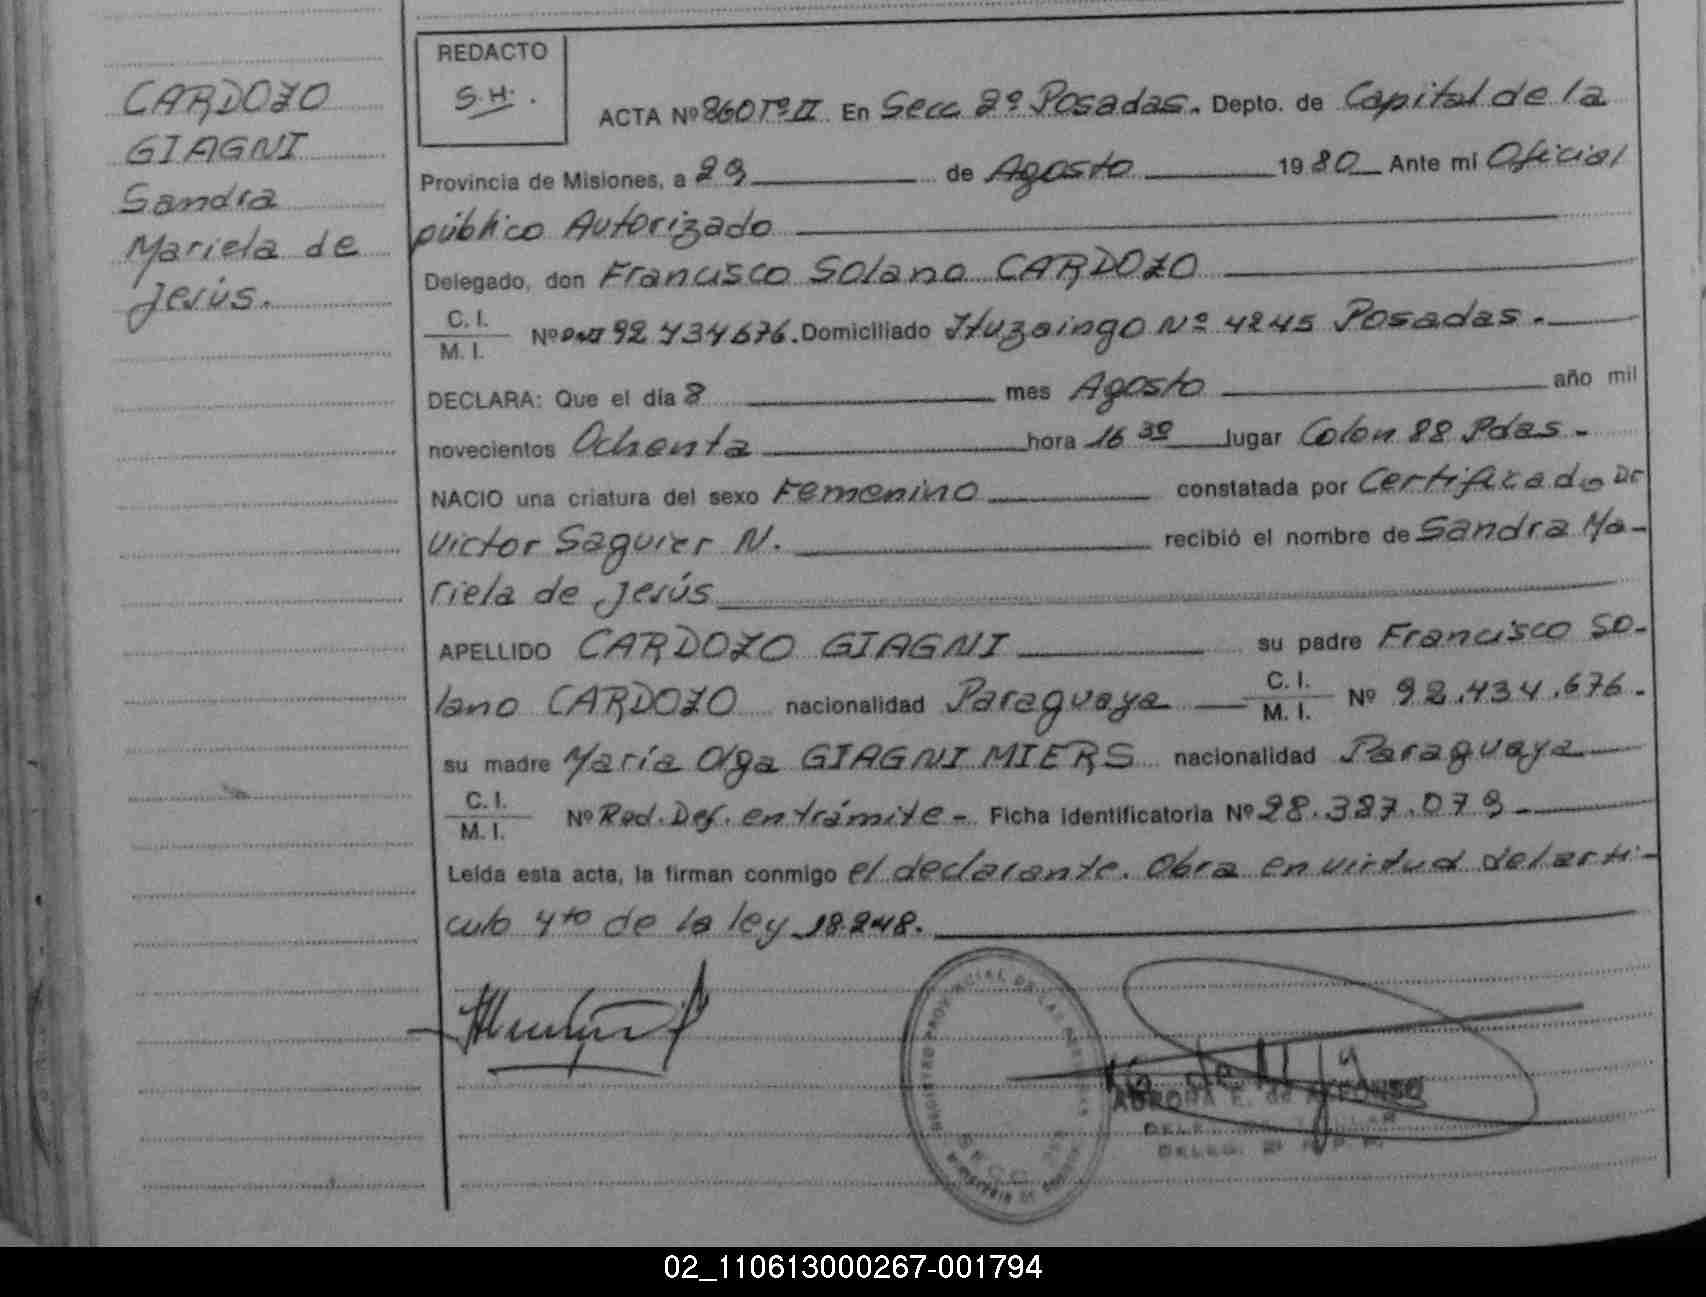 CARDOZO
GIAGNI
Sandra
Mariela de
Jesús.
REDACTO
S.H.
ACTA Nº 860 Tº II En Secc 2º Posadas. Depto. de Capital de la
Provincia de Misiones, a 29 de Agosto 1980 Ante mi Oficial
público Autorizado
Delegado, don Francisco Solano CARDOZO
C. I.
M. I. Nº DNI 92.434.676. Domiciliado Ituzaingo Nº 4245 Posadas.
DECLARA: Que el día 8 mes Agosto año mil
novecientos Ochenta hora 16 30 lugar Colon 88 Pdas.
NACIO una criatura del sexo Femenino constatada por Certificado Dr
Victor Saguier N. recibió el nombre de Sandra Ma-
riela de Jesús
APELLIDO CARDOZO GIAGNI su padre Francisco So-
lano CARDOZO nacionalidad Paraguaya C. I.
M. I. Nº 92.434.676.
su madre María Olga GIAGNI MIERS nacionalidad Paraguaya
C. I.
M. I. Nº Rad. Def. en trámite - Ficha identificatoria Nº 28.387.079
Leída esta acta, la firman conmigo el declarante. Obra en virtud del arti-
culo 4to de la ley 18.248.
REGISTRO PROVINCIAL DE LAS PERSONAS
SECC 2ª
AURORA E. de ALFONSO
DELEG. 2ª R.P.P.
02_110613000267-001794